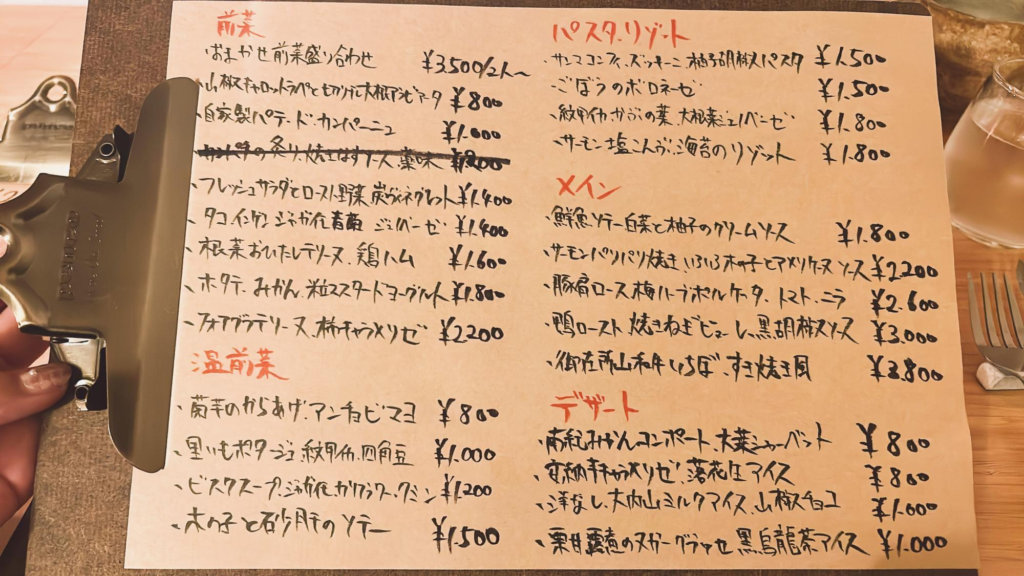 前菜
・おまかせ前菜盛り合わせ ¥3.500/2人〜
・山椒キャロットラペと 大根 ¥800
・自家製パテ・ド・カンパーニュ ¥1.000
の炙り、焼きなすソース、薬味 ¥2200
・フレッシュサラダとロースト野菜 炭ヴィネグレット ¥1.400
・タコ インゲン ジャガイモ ジェノベーゼ ¥1.400
・根菜 テリーヌ、鶏ハム ¥1.600
・ホタテ、みかん、粒マスタードヨーグルト ¥1.800
・フォアグラテリーヌ、柿キャラメリゼ ¥2200
温前菜
・菊芋のからあげ、アンチョビマヨ ¥800
・里いもポタージュ、紋甲イカ、四角豆 ¥1.000
・ビスクスープ、じゃが芋、カリフラワー、クミン ¥1.200
・木の子と砂肝のソテー ¥1.500
パスタ、リゾット
・サンマコンフィ、ズッキーニ 柚子胡椒パスタ ¥1.500
・ごぼうのボロネーゼ ¥1.500
・紋甲イカ、かぶの葉、大根葉ジェノベーゼ ¥1.800
・サーモン、塩こんぶ、海苔のリゾット ¥1.800
メイン
・鮮魚ソテー 白菜と柚子のクリームソース ¥1.800
・サーモンパリパリ焼き、いろいろ木の子とアメリケーヌソース ¥2200
・豚肩ロース、梅ハーブポルケッタ、トマト、ニラ ¥2.600
・鴨ロースト、焼きねぎピューレ、黒胡椒ソース ¥3.000
・御在所山和牛いちぼ、すき焼き風 ¥3.800
デザート
・南紀みかんコンポート、大葉シャーベット ¥800
・安納芋キャラメリゼ、落花生アイス ¥800
・洋なし、大内山ミルクアイス、山椒チョコ ¥1.000
・栗甘露煮のヌガーグラッセ 黒烏龍茶アイス ¥1.000